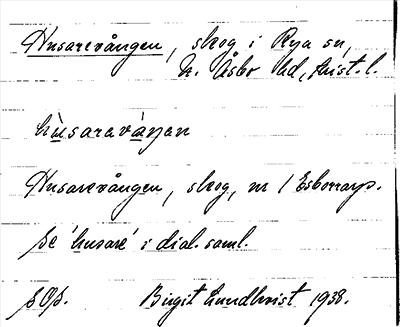 Husarevången, skog i Rya sn,
N. Åsbo hd, krist. l.
hùsaravàŋan
Husarevången, skog, nr 1 Esborrarp.
se 'husare' i dial. saml.
Birgit Lundkvist 1938.